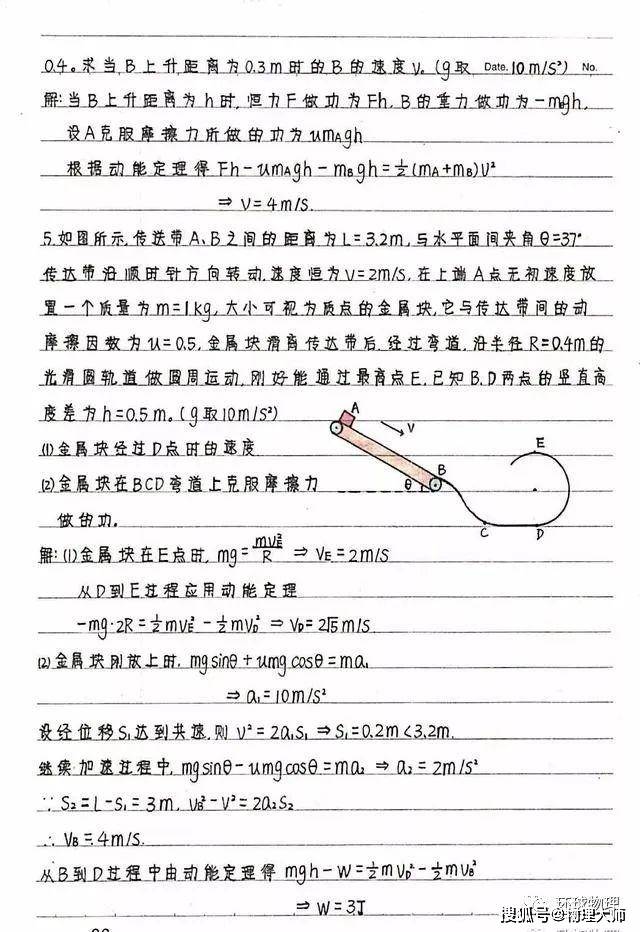 0.4。求当B上升距离为0.3m时的B的速度v。(g取 Date. 10m/s²) No.
解:当B上升距离为h时,恒力F做功为Fh,B的重力做功为-mBgh,
设A克服摩擦力所做的功为umAgh
根据动能定理得 Fh-umAgh-mBgh=½(mA+mB)v²
⇒ V=4m/s.
5.如图所示,传送带A、B之间的距离为L=3.2m,与水平面间夹角θ=37°
传达带沿顺时针方向转动,速度恒为V=2m/s,在上端A点无初速度放
置一个质量为m=1kg,大小可视为质点的金属块,它与传达带间的动
摩擦因数为u=0.5,金属块滑离传达带后,经过弯道,沿半径R=0.4m的
光滑圆轨道做圆周运动,刚好能通过最高点E,已知B.D两点的竖直高
度差为h=0.5m。(g取10m/s²)
(1)金属块经过D点时的速度
(2)金属块在BCD弯道上克服摩擦力
做的功。
A
V
B
θ
E
C
D
解:(1)金属块在E点时,mg=mVE²/R ⇒ VE=2m/s
从D到E过程应用动能定理
-mg·2R=½mVE²-½mVD² ⇒ VD=2√5m/s
(2)金属块刚放上时,mgsinθ+umgcosθ=ma₁
⇒ a₁=10m/s²
设经位移S₁达到共速,则 V²=2a₁S₁ ⇒ S₁=0.2m<3.2m.
继续加速过程中,mgsinθ-umgcosθ=ma₂ ⇒ a₂=2m/s²
∵ S₂=L-S₁=3m, VB²-V²=2a₂S₂
∴ VB=4m/s.
从B到D过程中由动能定理得 mgh-W=½mVD²-½mVB²
⇒ W=3J
环球物理
搜狐号@物理大师